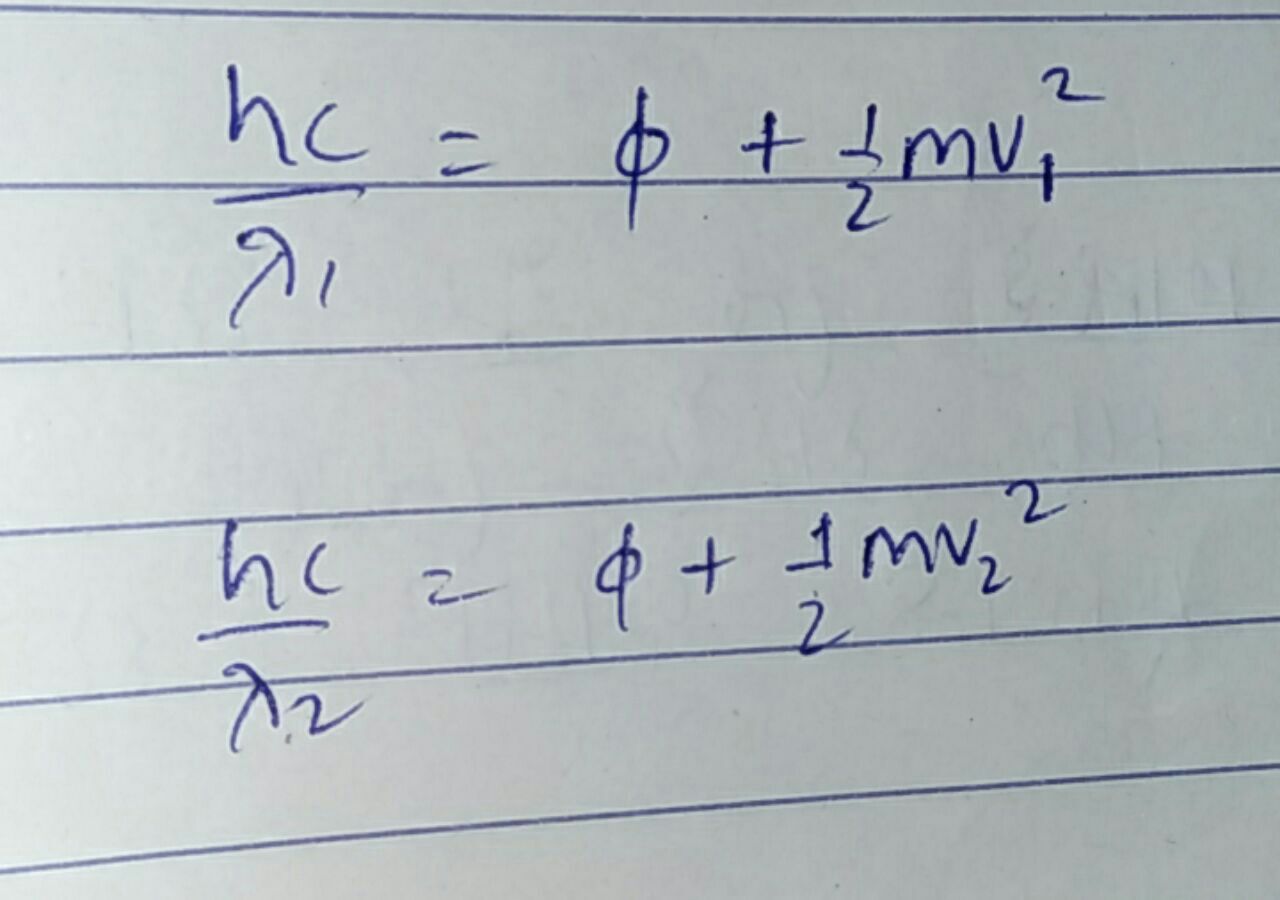 hc/λ₁ = φ + 1/2 mv₁²
hc/λ₂ = φ + 1/2 mv₂²